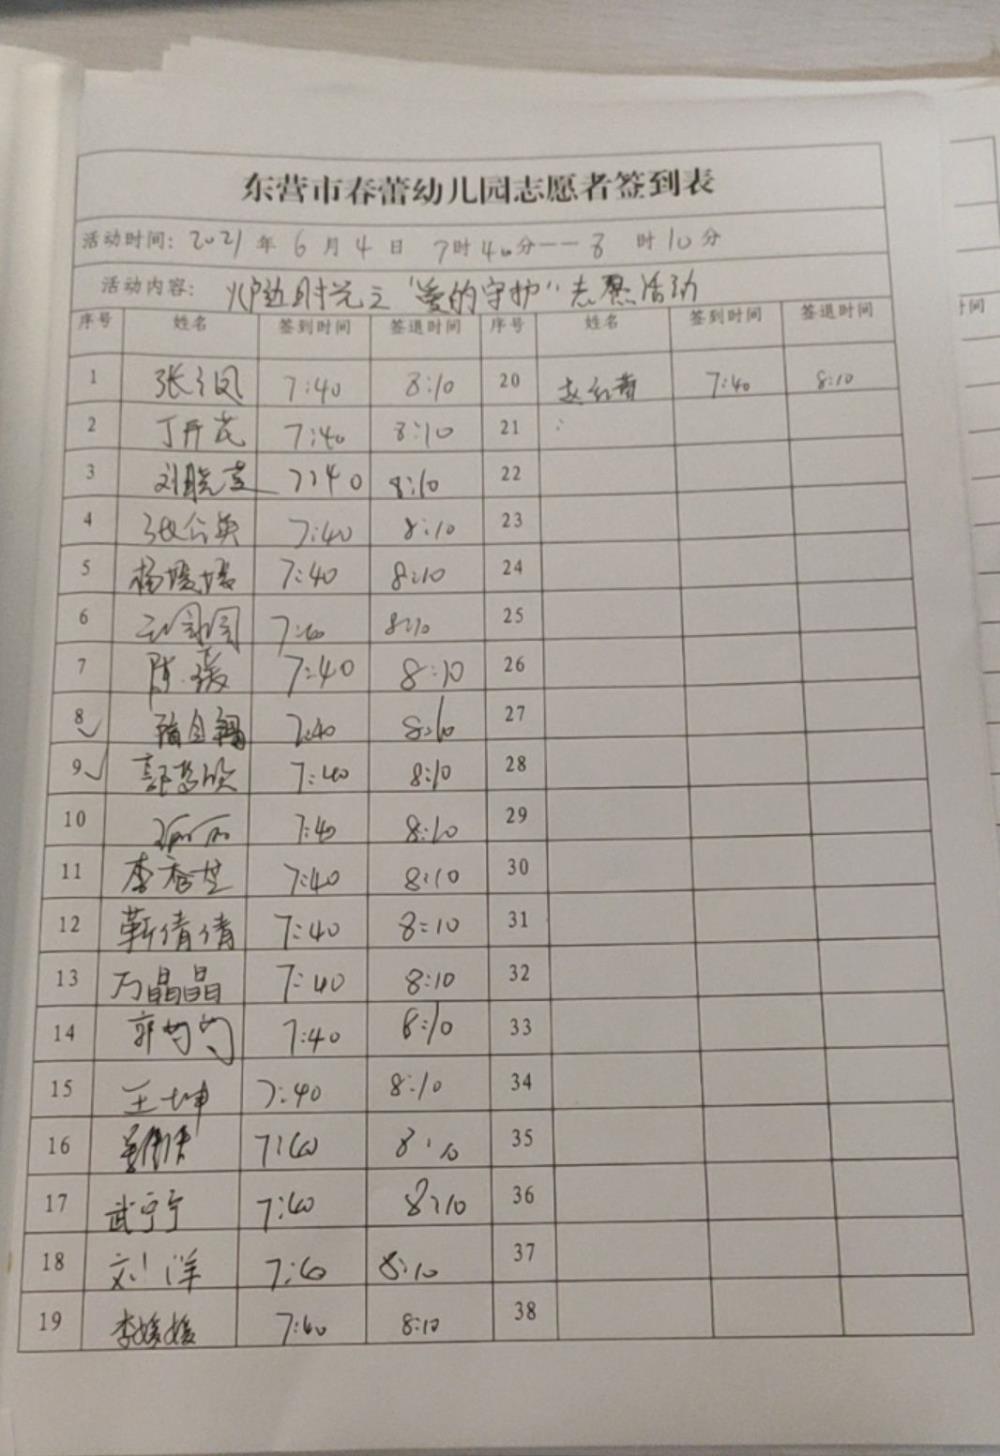 东营市春蕾幼儿园志愿者签到表
活动时间: 2021 年 6 月 4 日 7时40分——8 时10分
活动内容: 炉边时光之"爱的守护"志愿活动
序号 姓名 签到时间 签退时间 序号 姓名 签到时间 签退时间
1 7:40 8:10 20 7:40 8:10
2 丁开芘 7:40 8:10 21
3 刘晓 7:40 8:10 22
4 张公英 7:40 8:10 23
5 杨媛媛 7:40 8:10 24
6 7:40 8:10 25
7 陈媛 7:40 8:10 26
8 7:40 8:10 27
9 7:40 8:10 28
10 7:40 8:10 29
11 李香芝 7:40 8:10 30
12 靳倩倩 7:40 8:10 31
13 万晶晶 7:40 8:10 32
14 郭均均 7:40 8:10 33
15 王坤 7:40 8:10 34
16 7:40 8:10 35
17 武宁宁 7:40 8:10 36
18 刘洋 7:40 8:10 37
19 李媛媛 7:40 8:10 38
时间